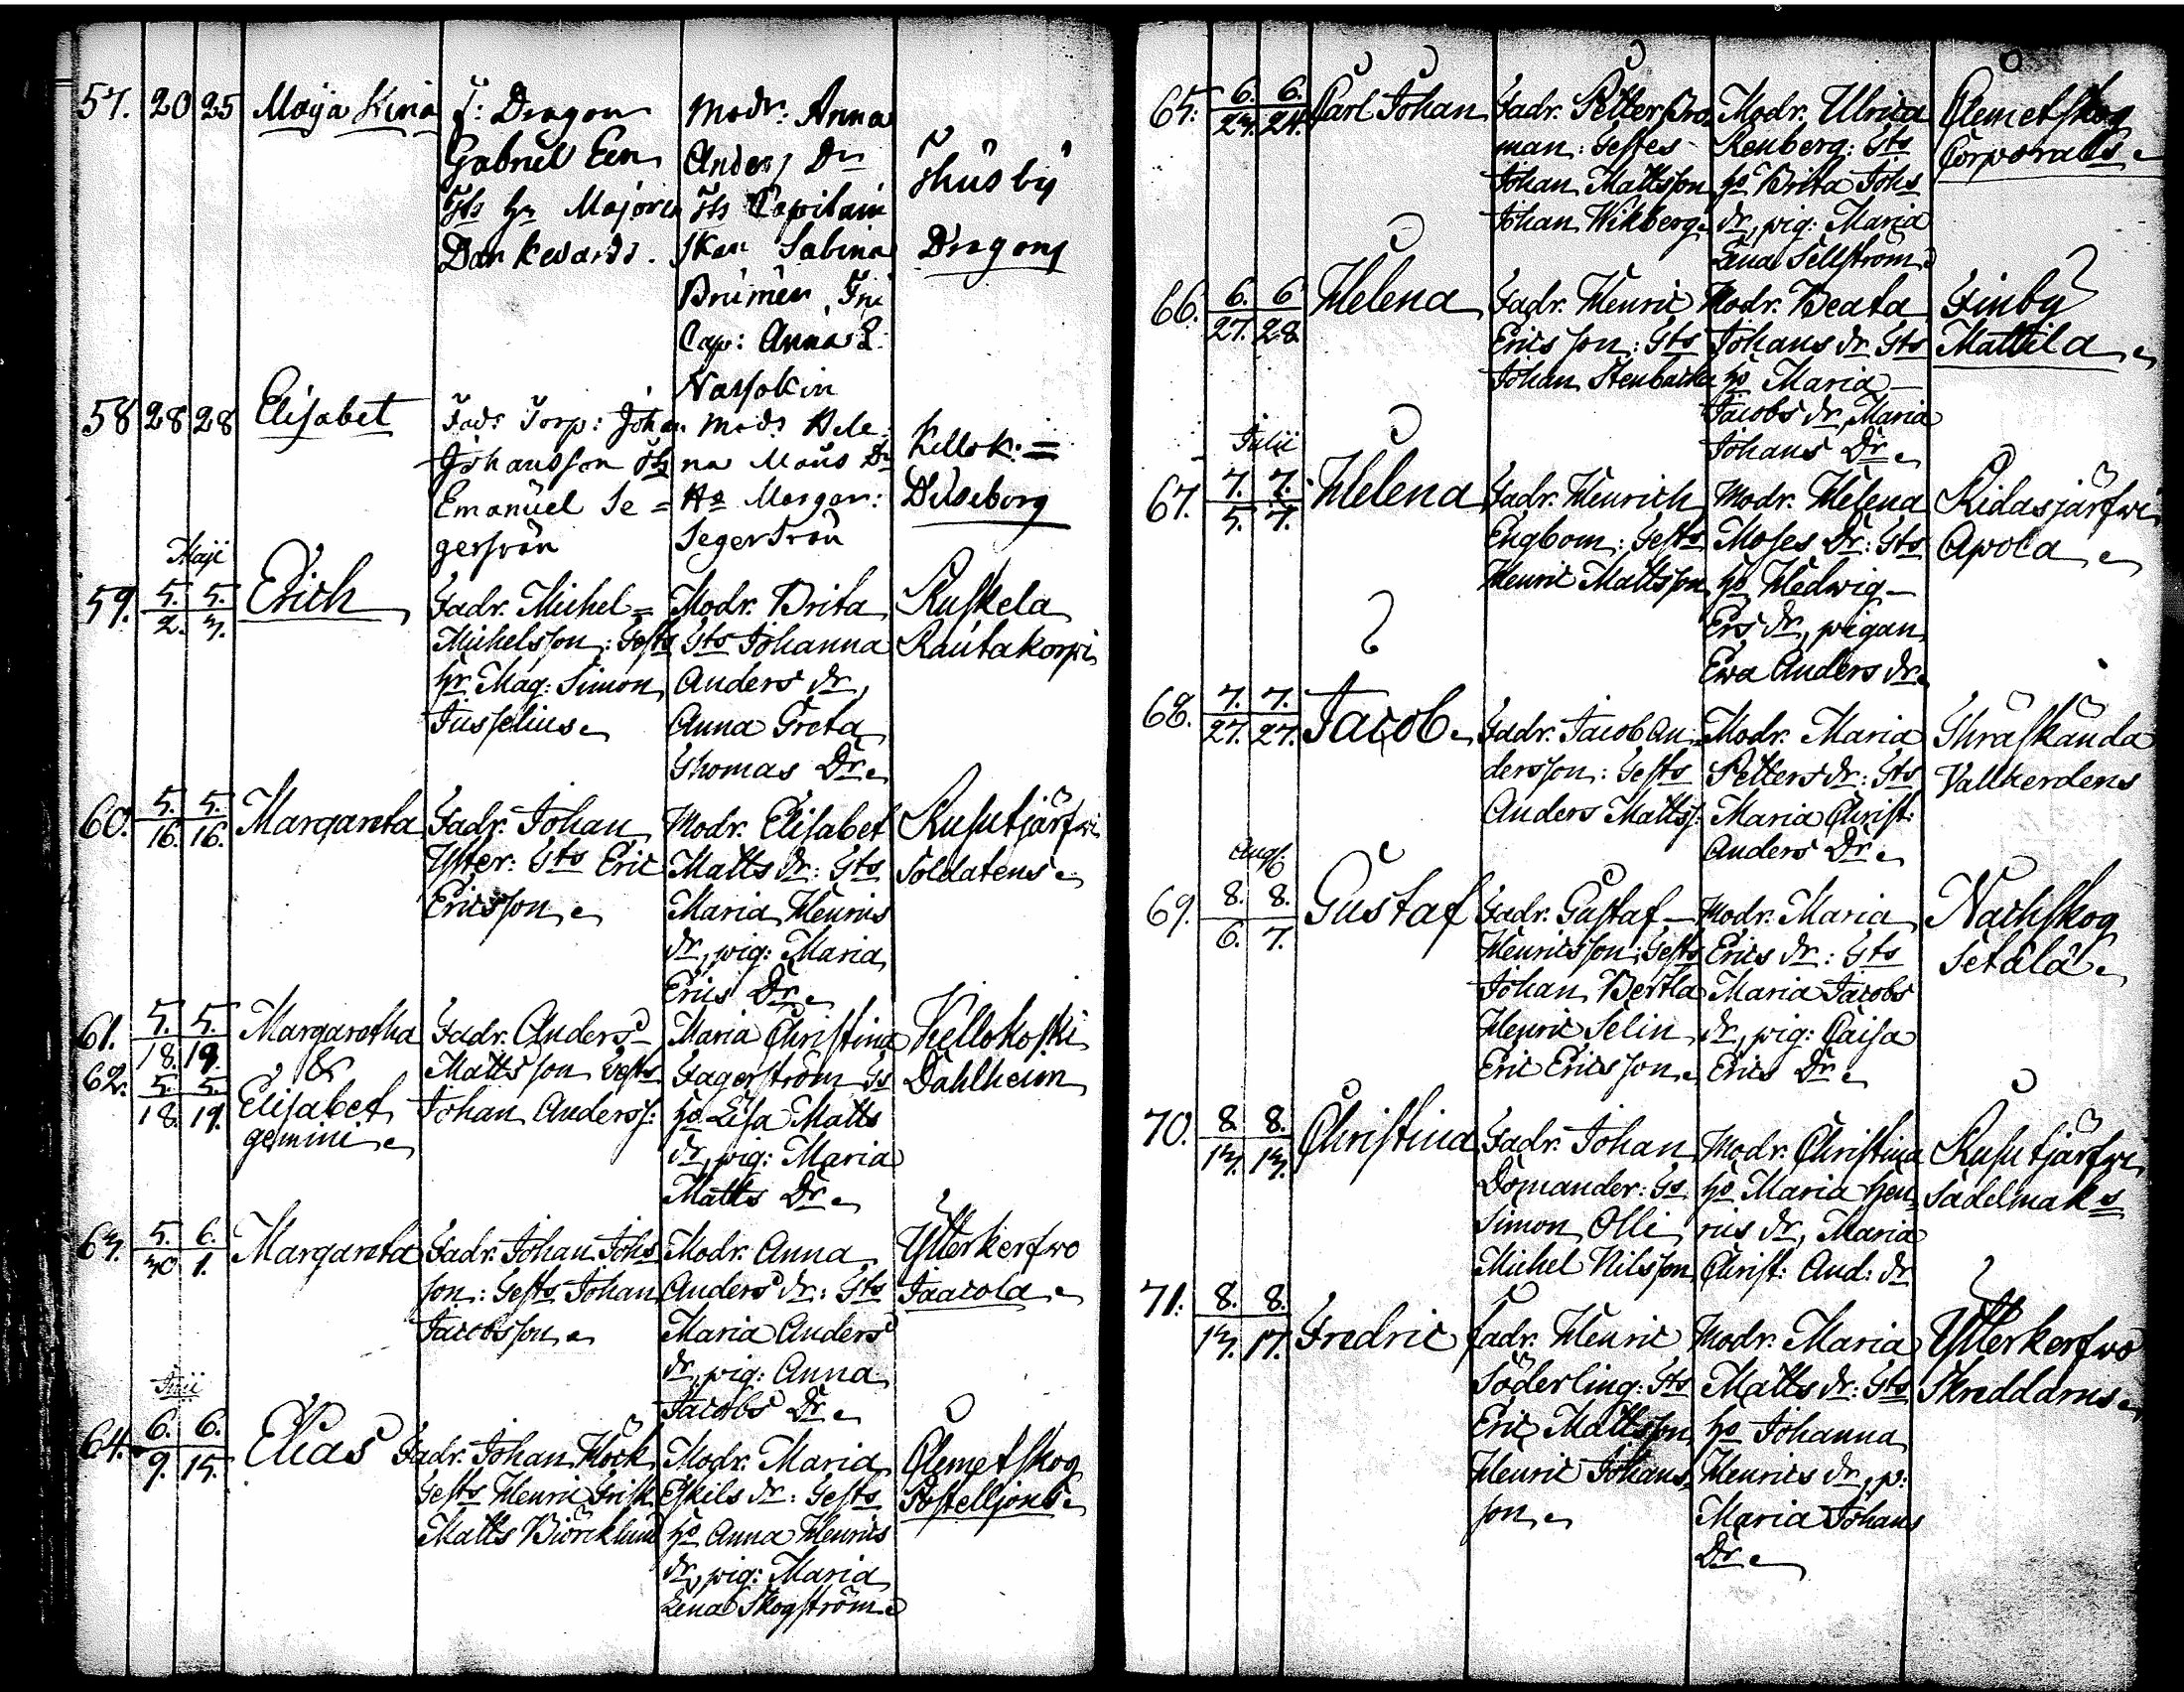 57. 20 25 Maija Stina
F: Dragon
Gabriel Een
Fts hr Majoren
Dankwardt.
Modr: Anna
Anders Dr
Fts Capitain
skan Sabina
Brumer, Fru
Cap: Anna L.
Nassokin
Thusby
Dragons
58 28 28 Elisabet
Fadr Torp: Johan
Johansson
Emanuel Se=
Modr Hele
na Mats Dr
Ho Margar:
Kellok:=
Dilseborg
Maji
59. 5. 5. Erich
2. 3.
Fadr. Michel=
Michelsson: Tests
hr. Mag: Simon
Jusselius
Modr. Brita
Gts Johanna
Anders dr,
Anna Greta
Thomas Dr
Ruskela
Rautakorpi
60. 5. 5. Margareta
16. 16.
Fadr. Johan
Yster: Gts Eric
Ericsson
Modr. Elisabet
Matts dr: Gts
Maria Henrics
dr, pig: Maria
Erics Dr
Rusutjärfwi
Soldatens
61. 5. 5. Margaretha
18. 19. &
62. 5. 5. Elisabet
18. 19. gemini
Fadr. Anders
Mattsson Tests
Johan Anderss:
Maria Christina
Fagerström Gs
ho Lisa Matts
dr, pig: Maria
Matts Dr
Kellokoski
Dahlheim
63. 5. 6. Margareta
30 1.
Fadr. Johan Johs
son: Tests Johan
Jacobsson
Modr. Anna
Anders dr: Gts
Maria Anders
dr, pig: Anna
Jacobs Dr
Ytterkerfwo
Jaacola
Junii
64. 6. 6. Elias
9. 15.
Fadr. Johan Höck
Tests Henric Grisk
Matts Biörcklund
Modr. Maria
Eskils dr: Tests
ho Anna Henrics
dr, pig: Maria
Lena Skogström
Clemetskog
Postelljons
65. 6. 6. Carl Johan
23. 24.
Fadr. Petter Bro
man: Testes
Johan Mattsson
Johan Wikberg
Modr. Ulrica
Renberg: Gts
ho Brita Johs
dr, pig: Maria
Lena Sellström
Clemetskog
Corporals
66. 6. 6 Helena
27. 28
Fadr. Henric
Ericsson: Gts
Johan Stenbacka
Modr. Beata
Johans dr Gts
ho Maria
Jacobs dr, Maria
Johans Dr
Finby
Mattila
Julii
67. 7. 7. Helena
5. 7.
Fadr. Henrich
Engbom: Tests
Henric Mattsson
Modr. Helena
Moses Dr: Gts
ho Hedwig
Ers dr, pigan
Ewa Anders dr
Ridasjärfwi
Apola
68. 7. 7. Jacob
27. 27.
Fadr. Jacob An
dersson: Tests
Anders Matts:
Modr. Maria
Petters dr: Gts
Maria Christ:
Anders Dr
Thräskända
Vallherdens
Aug:
69. 8. 8. Gustaf
6. 7.
Fadr. Gustaf
Henricsson: Tests
Johan Bertla
Henric Selin
Eric Ericsson
Modr. Maria
Erics dr: Gts
Maria Jacobs
dr, pig: Caisa
Erics Dr
Nackskog
Setälä
70. 8. 8. Christina
13. 13.
Fadr. Johan
Domander: Gs
Simon Olli
Michel Nilsson
Modr. Christina
ho Maria Hen
rics dr, Maria
Christ: And: dr
Rusutjärfwi
Sadelmaks
71. 8. 8. Fredric
13. 17.
Fadr. Henric
Söderling: Gts
Eric Mattsson
Henric Johans
son
Modr. Maria
Matts dr: Gts
ho Johanna
Henrics dr, p:
Maria Johans
Dr
Ytterkerfwo
Skreddarns